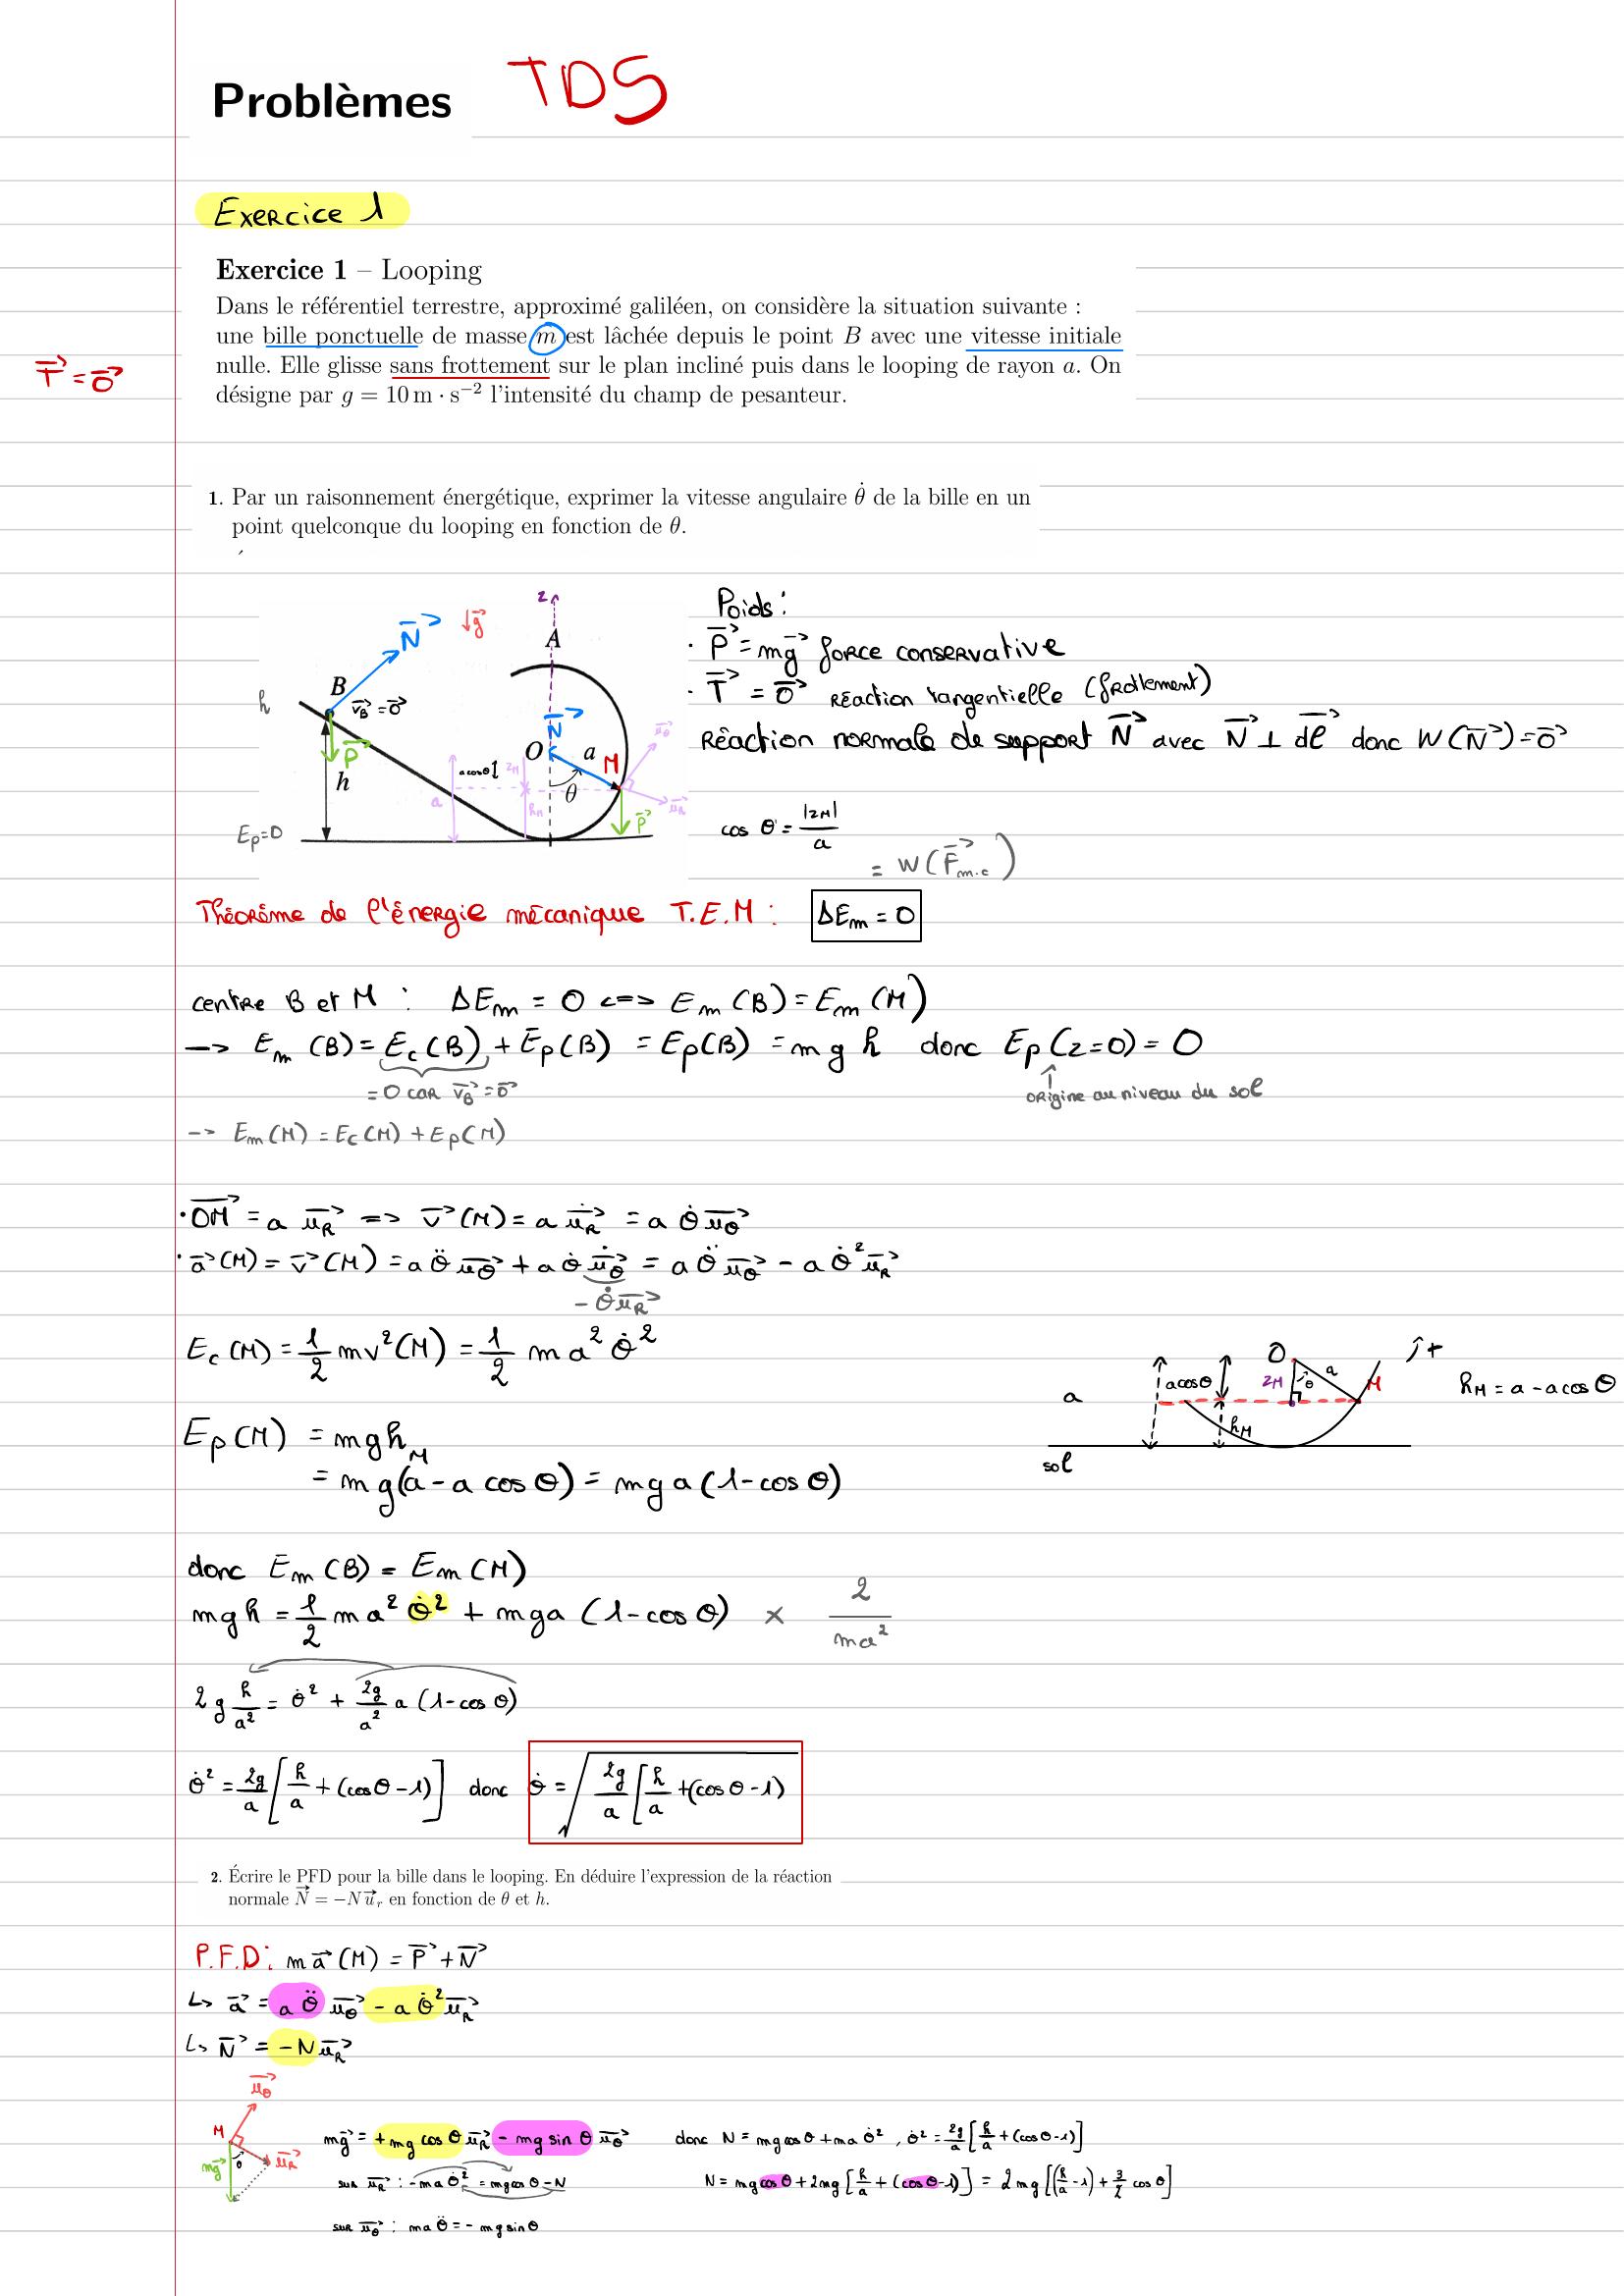 Problèmes TD5
Exercice 1
Exercice 1 – Looping
Dans le référentiel terrestre, approximé galiléen, on considère la situation suivante :
une bille ponctuelle de masse m est lâchée depuis le point B avec une vitesse initiale
nulle. Elle glisse sans frottement sur le plan incliné puis dans le looping de rayon a. On
désigne par g = 10 m · s⁻² l'intensité du champ de pesanteur.
T⃗ = 0⃗
1. Par un raisonnement énergétique, exprimer la vitesse angulaire θ̇ de la bille en un
point quelconque du looping en fonction de θ.
z
A
N⃗
↓g⃗
B
h
v⃗_B = 0⃗
P⃗
h
N⃗
O
a
M
u⃗_θ
a cosθ
z_M
θ
a
h_M
u⃗_R
P⃗
Ep=0
Poids :
· P⃗ = mg⃗ force conservative
· T⃗ = 0⃗ réaction tangentielle (frottement)
Réaction normale de support N⃗ avec N⃗ ⊥ dl⃗ donc W(N⃗) = 0⃗
cos θ = |z_M|/a
= W(F⃗m.c)
Théorème de l'énergie mécanique T.E.M : ΔEm = 0
centre B et M : ΔEm = 0 <=> Em(B) = Em(M)
-> Em(B) = Ec(B) + Ep(B) = Ep(B) = mgh donc Ep(z=0) = 0
= 0 car v⃗_B = 0⃗
↑ origine au niveau du sol
-> Em(M) = Ec(M) + Ep(M)
· OM⃗ = a u⃗_R => v⃗(M) = a u̇⃗_R = a θ̇ u⃗_θ
· a⃗(M) = v̇⃗(M) = a θ̈ u⃗_θ + a θ̇ u̇⃗_θ = a θ̈ u⃗_θ - a θ̇² u⃗_R
- θ̇ u⃗_R
Ec(M) = 1/2 mv²(M) = 1/2 m a² θ̇²
O
a
a cosθ
z_M
θ
a
M
h_M
sol
h_M = a - a cos θ
Ep(M) = mgh_M
= mg(a - a cos θ) = mga(1 - cos θ)
donc Em(B) = Em(M)
mgh = 1/2 m a² θ̇² + mga (1 - cos θ) × 2/ma²
2g h/a² = θ̇² + 2g/a² a (1 - cos θ)
θ̇² = 2g/a [h/a + (cos θ - 1)] donc θ̇ = √(2g/a [h/a + (cos θ - 1)
2. Écrire le PFD pour la bille dans le looping. En déduire l'expression de la réaction
normale N⃗ = −N u⃗_r en fonction de θ et h.
P.F.D : m a⃗(M) = P⃗ + N⃗
↳ a⃗ = a θ̈ u⃗_θ - a θ̇² u⃗_R
↳ N⃗ = - N u⃗_R
u⃗_θ
M
mg⃗
θ
u⃗_R
mg⃗ = + mg cos θ u⃗_R - mg sin θ u⃗_θ
sur u⃗_R : - ma θ̇² = mg cos θ - N
sur u⃗_θ : ma θ̈ = - mg sin θ
donc N = mg cos θ + ma θ̇², θ̇² = 2g/a [h/a + (cos θ - 1)]
N = mg cos θ + 2mg [h/a + (cos θ - 1)] = 2mg [(h/a - 1) + 3/2 cos θ]